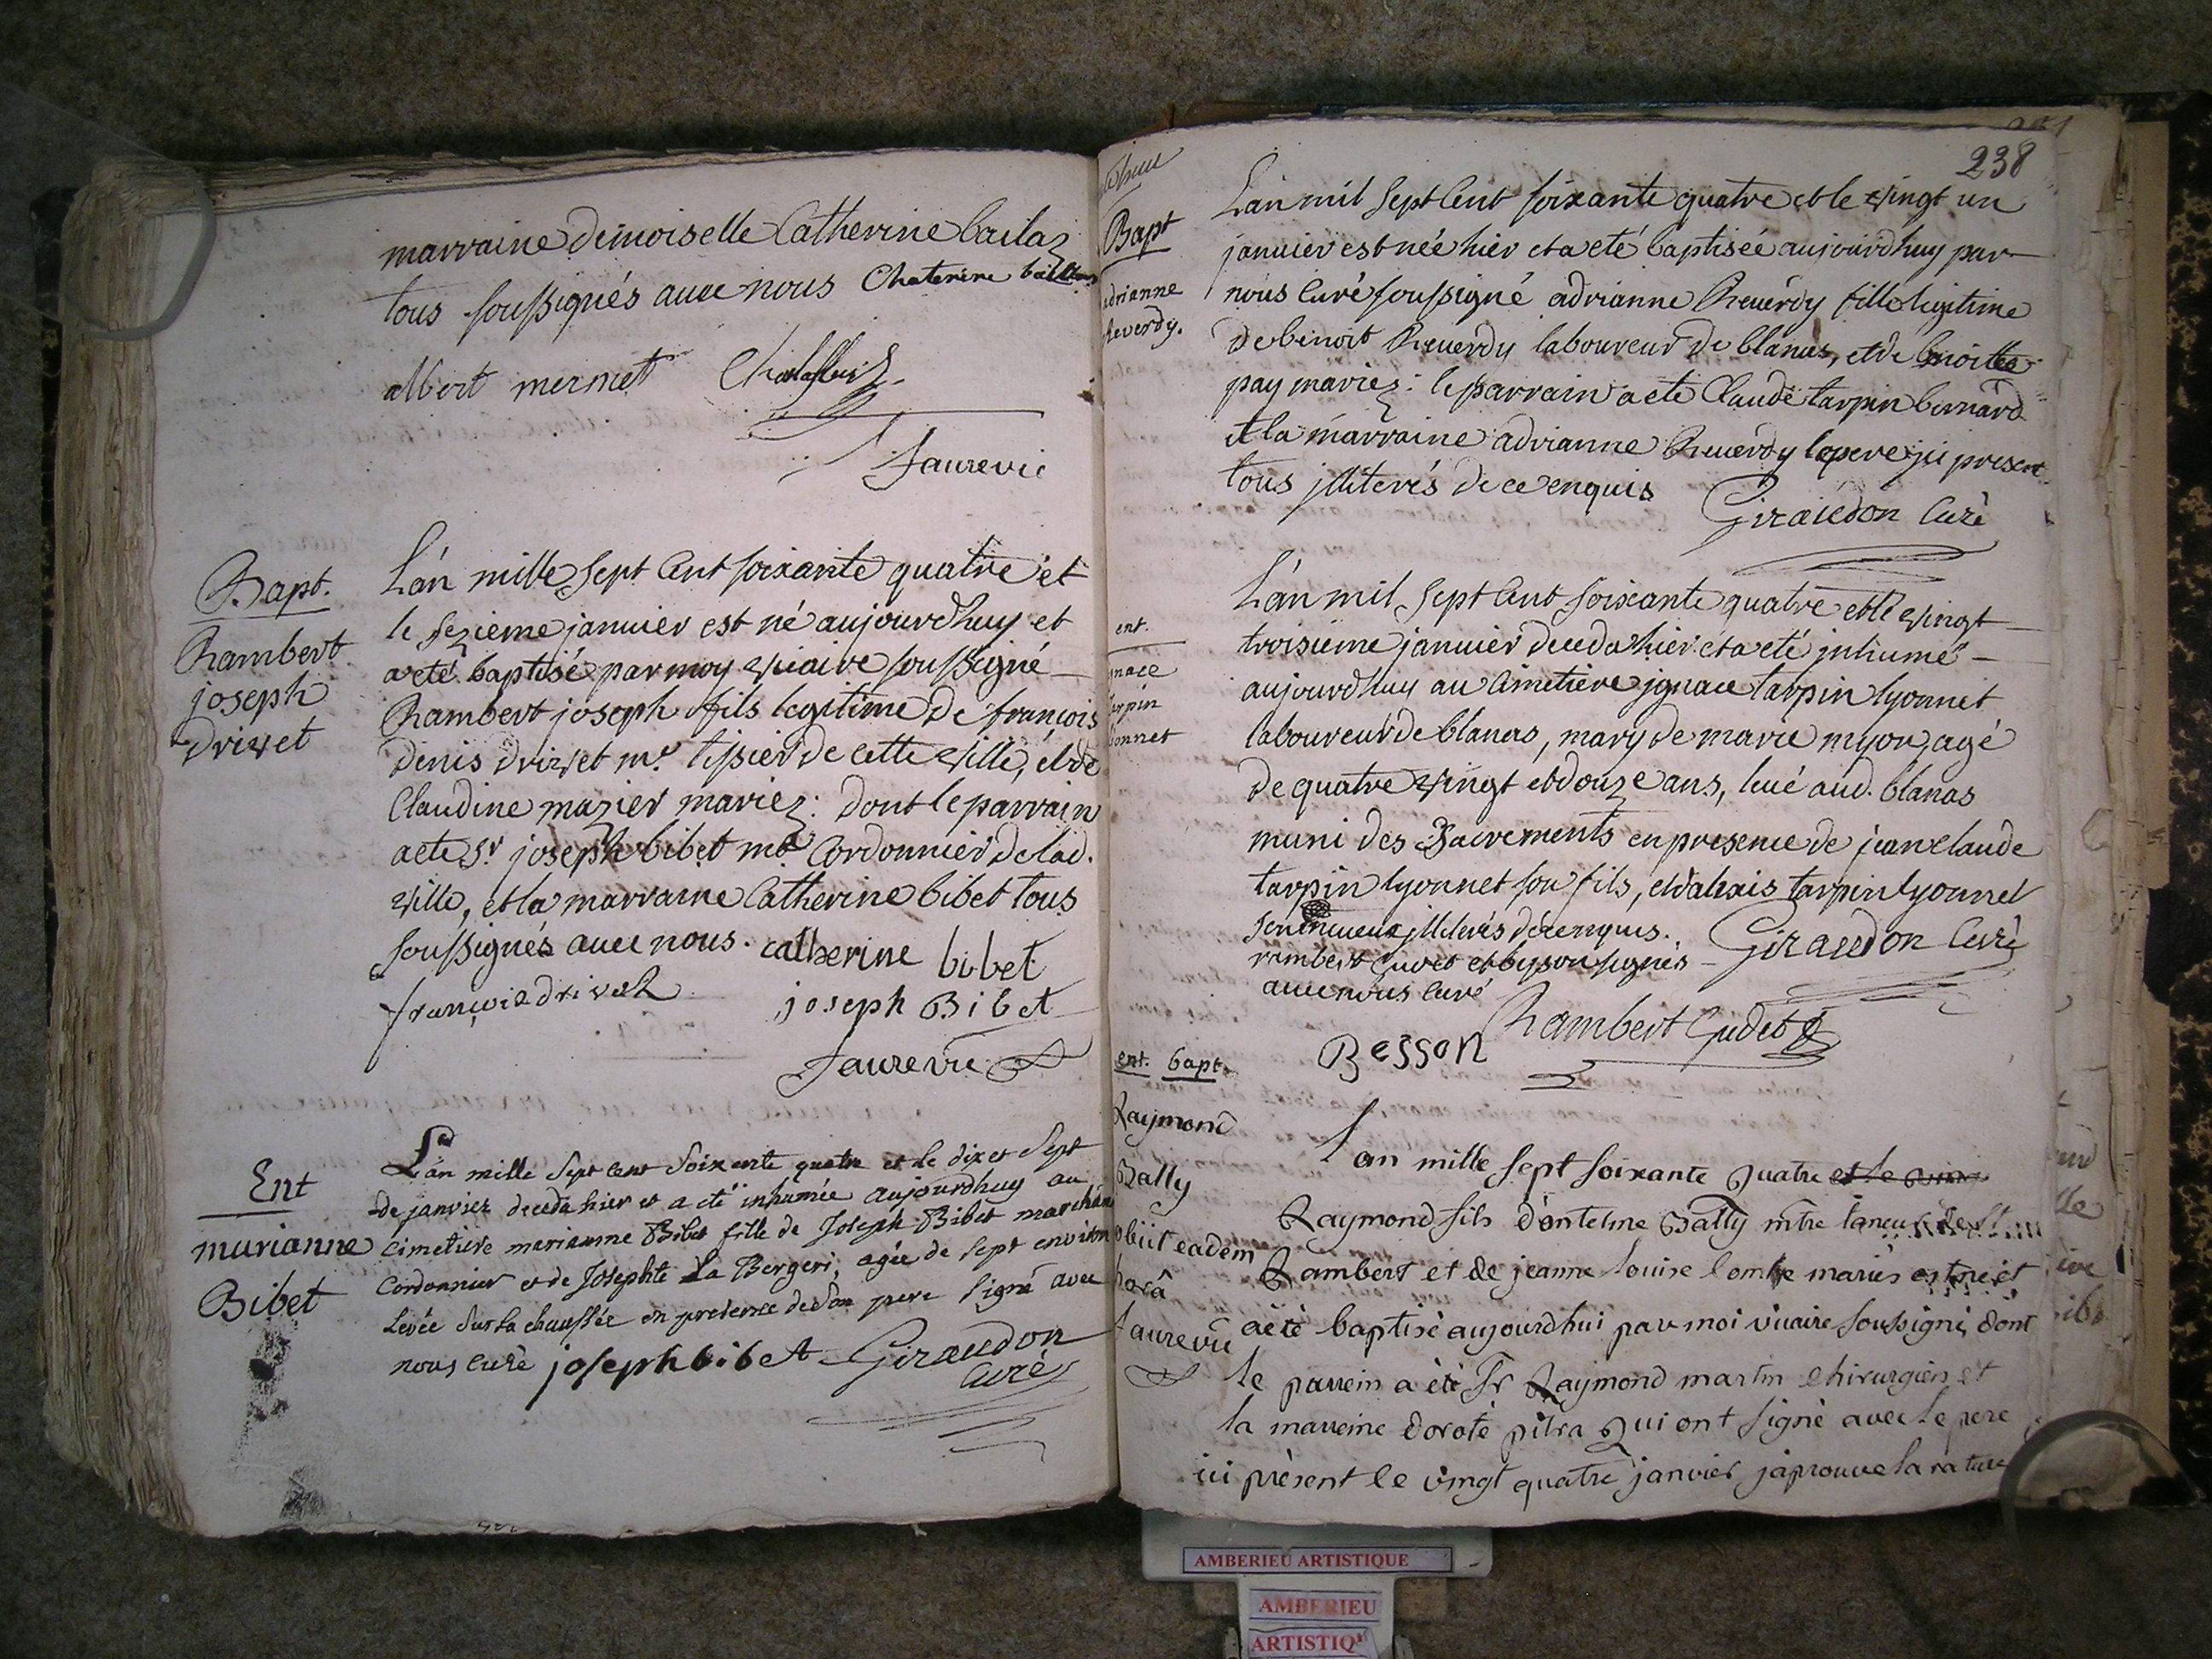 marraine demoiselle Catherine Cailaz
tous soussignés avec nous Chaterine
albert mermet
Faurevie
Bapt.
Rambert
joseph
drivet
L'an mille sept Cent soixante quatre et
le sezieme janvier est né aujourdhuy et
a eté baptisé par moy vicaire soussigné
Rambert joseph fils legitime de françois
denis drivet me. tissier de cette ville, et de
Claudine mazier mariez: dont le parrain
a eté Sr joseph bibet me Cordonnier de lad.
ville, et la marraine Catherine bibet tous
soussignés avec nous. catherine bibet
françois drivet joseph Bibet
Faurevie
Ent
marianne
Bibet
L'an mille Sept cent Soixante quatre et le dix et Sept
de janvier deceda hier et a eté inhumée aujourdhuy au
cimetiere marianne Bibet fille de Joseph Bibet marchand
Cordonnier et de Josephte La Bergeri, agée de sept environ
Levée sur la chaussée en presence de Son pere signé avec
nous curé joseph bibet Giraudon
Curé
238
Bapt
adrianne
Reverdy.
L'an mil sept Cent soixante quatre et le vingt un
janvier est née hier et a eté baptisée aujourdhuy par
nous Curé soussigné adrianne Reverdy fille legitime
de benoit Reverdy laboureur de blanas, et de benoite
pay mariez: le parrain a eté Claude tarpin bernard
et la marraine adrianne Reverdy le pere jci present
tous jlliterés de ce enquis Giraudon Curé
ent.
jgnace
tarpin
lyonnet
L'an mil sept Cent soixante quatre et le vingt
troisieme janvier deceda hier et a eté jnhumé
aujourdhuy au Cimetiere jgnace tarpin lyonnet
laboureur de blanas, mary de marie myon, agé
de quatre vingt et douze ans, levé aud. blanas
muni des Sacrements en presence de jean claude
tarpin lyonnet son fils, et d'alexis tarpin lyonnet
son neveux jlliterés de ce enquis. Giraudon Curé
rambert Gudet et soussignés
avec nous curé
Rambert Gudet
Besson
ent. bapt.
Raymond
Bally
obiit eadem
horâ
faurevie
L'an mille sept soixante quatre et le
Raymond fils d'antelme Bally mtre taneur de St
Rambert et de jeanne louise lombe mariés est né et
a èté baptisé aujourdhui par moi vicaire soussigné, dont
le parrein a èté Sr Raymond martin chirurgien et
la marreine doroté pitra qui ont signé avec le pere
ici présent le vingt quatre janvier j'aprouve la rature
AMBERIEU ARTISTIQUE
AMBERIEU
ARTISTIQ